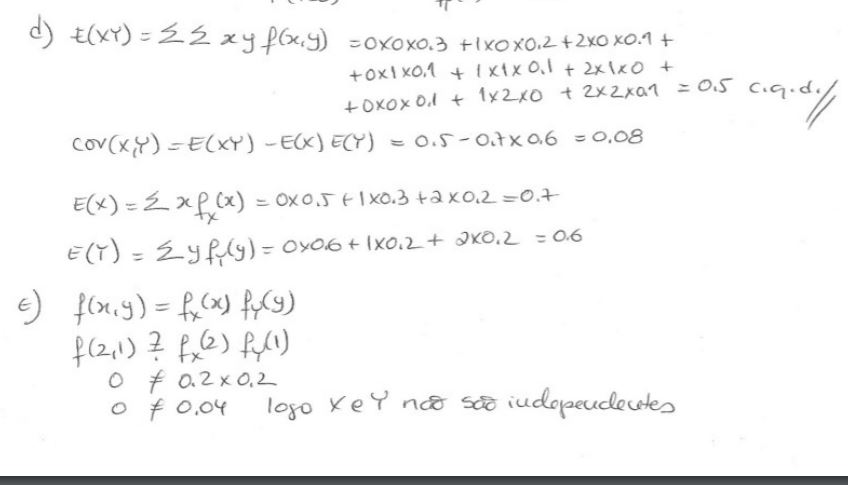 d) E(XY) = ΣΣ xy f(x,y) = 0x0x0.3 + 1x0x0.2 + 2x0x0.1 +
+ 0x1x0.1 + 1x1x0.1 + 2x1x0 +
+ 0x0x0.1 + 1x2x0 + 2x2x0.1 = 0.5 c.q.d.//
COV(X,Y) = E(XY) - E(X) E(Y) = 0.5 - 0.7x0.6 = 0.08
E(X) = Σ x fx(x) = 0x0.5 + 1x0.3 + 2x0.2 = 0.7
E(Y) = Σ y fy(y) = 0x0.6 + 1x0.2 + 2x0.2 = 0.6
e) f(x,y) = fx(x) fy(y)
f(2,1) ? fx(2) fy(1)
0 ≠ 0.2 x 0.2
0 ≠ 0.04 logo X e Y não são independentes